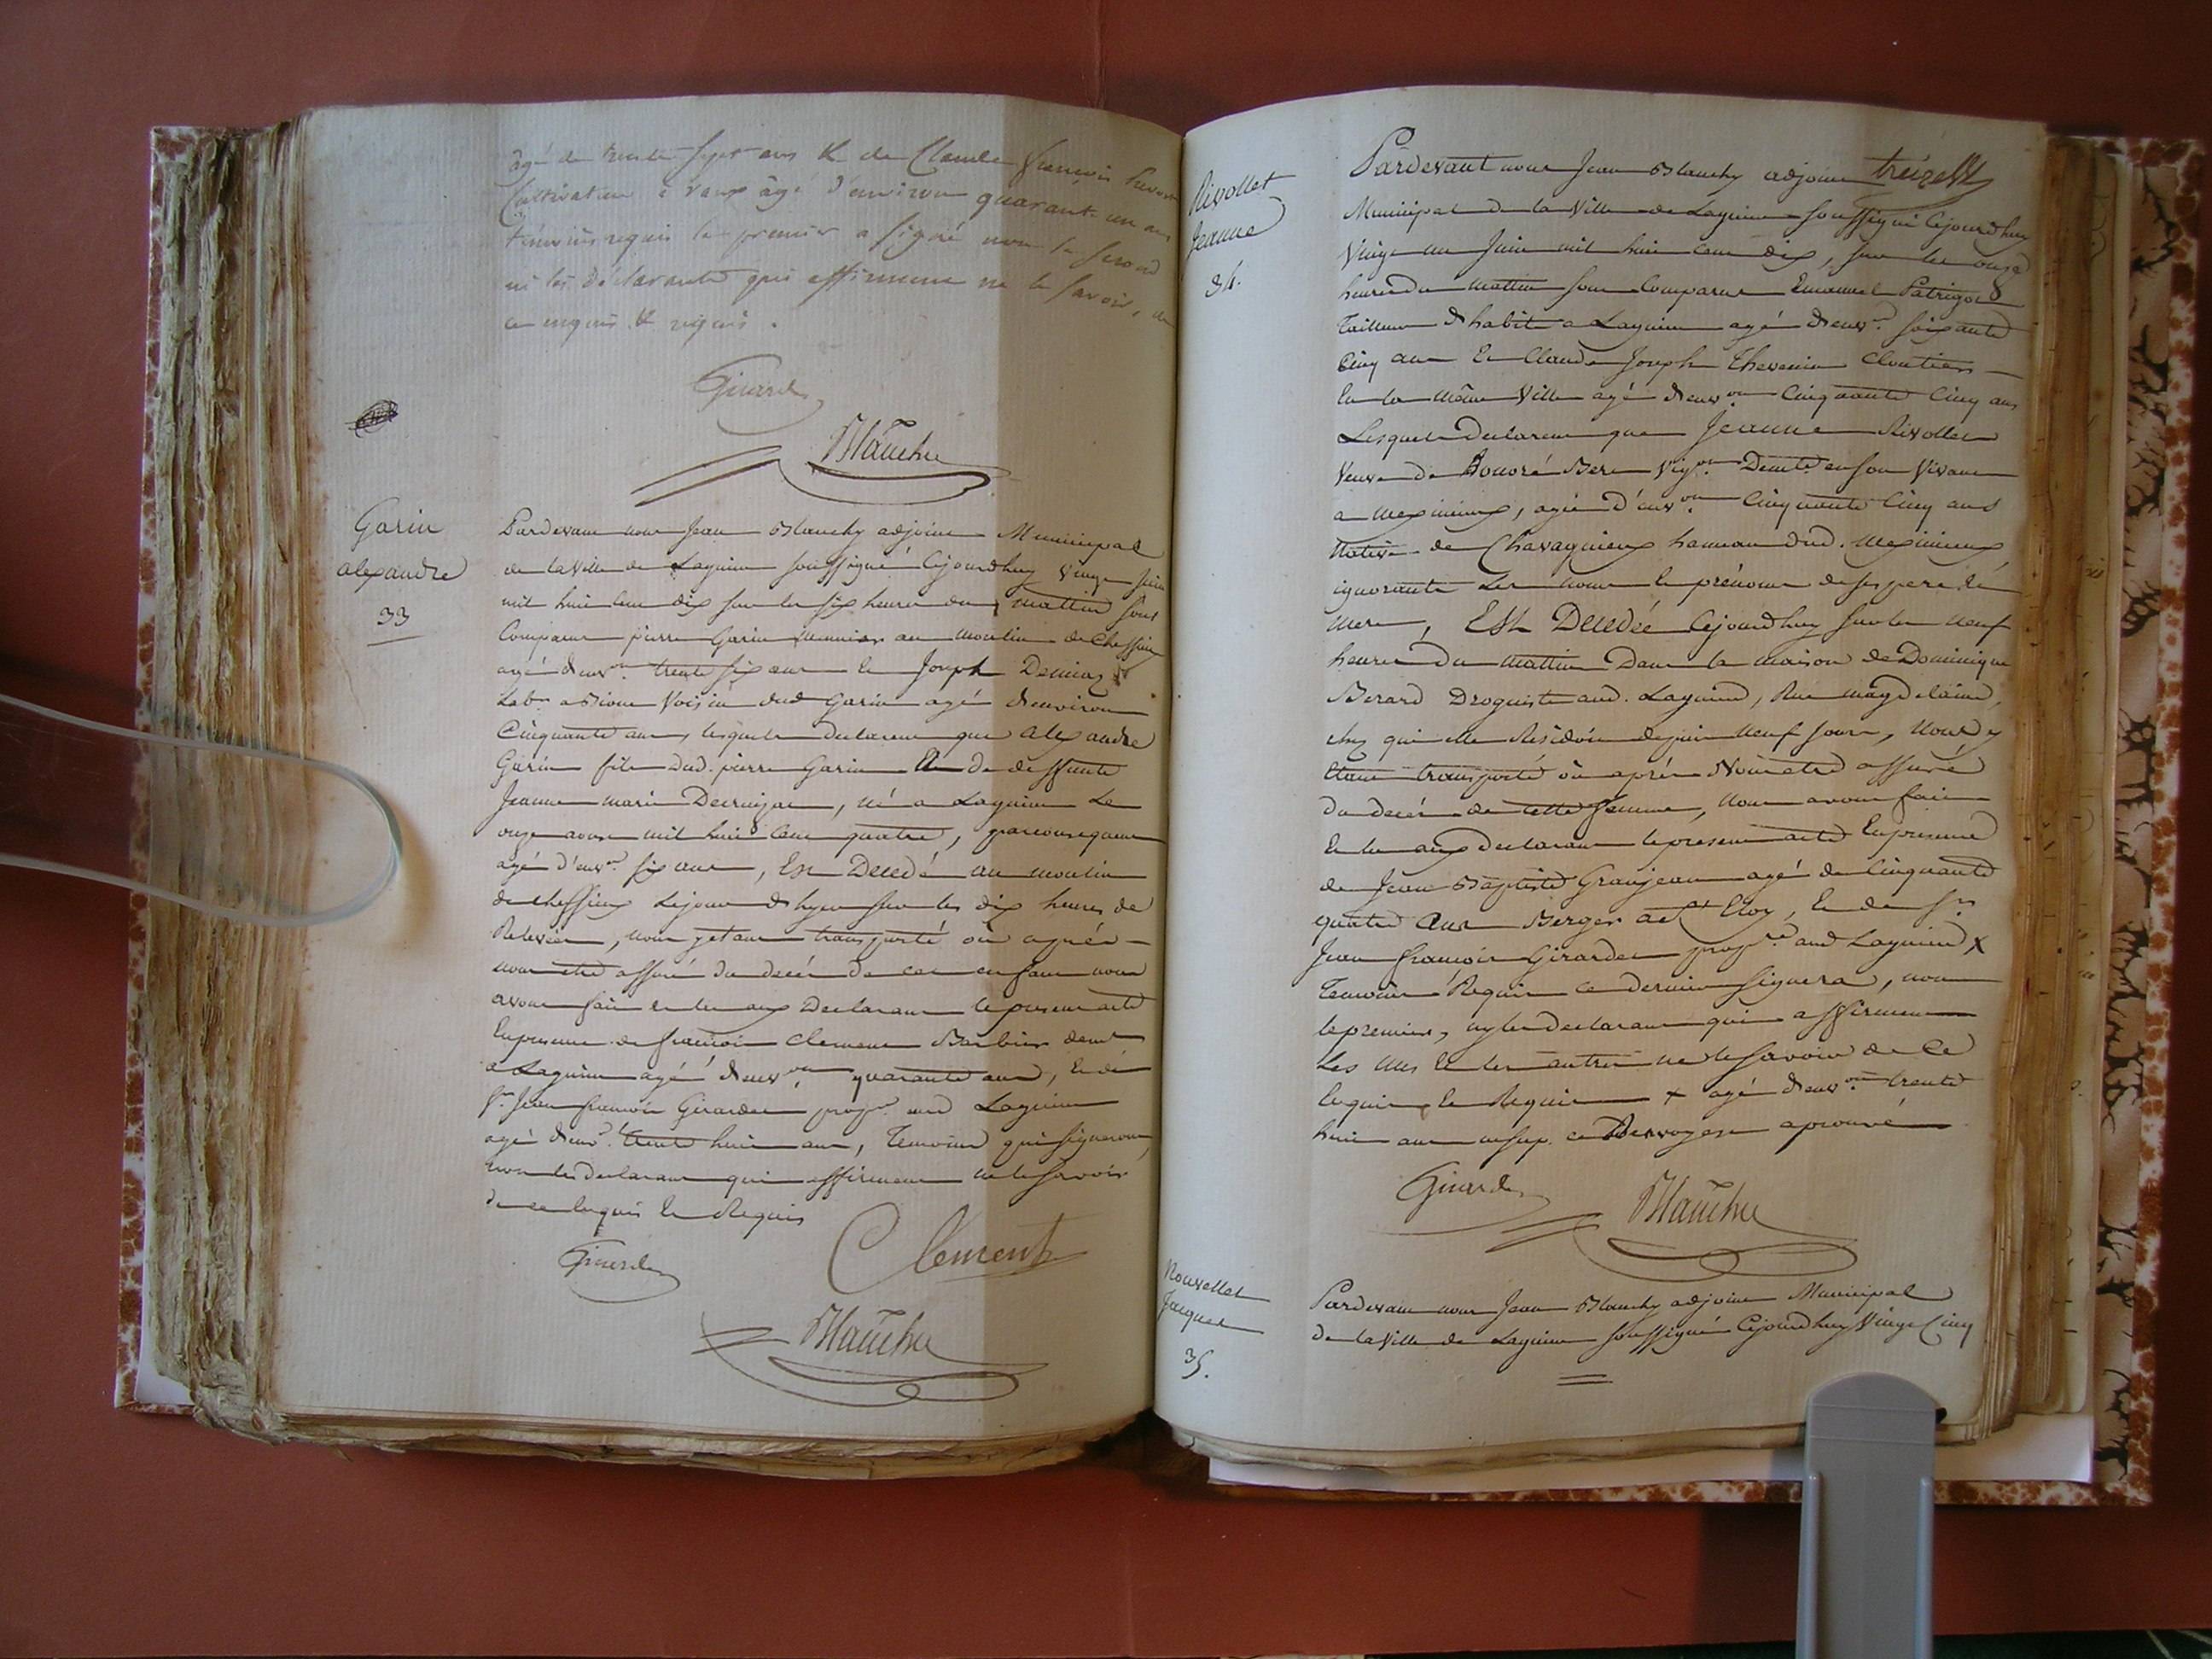 âgé de trente sept ans & de Claude françois
Cultivateur à vaux âgé d'environ quarante un ans
témoins requis le premier a signé non le second
ni les Déclarants qui affirment ne le savoir, de
ce enquis & requis.
Girardet
Blanchy
Garin
alexandre
33
Pardevant nous Jean Blanchy adjoint Municipal
de la Ville de Lagnieu soussigné Cejourdhuy vingt Juin
mil huit Cent dix sur les six heures du mattin sont
Comparus pierre Garin meunier au moulin de
agé d'env.on trente six ans et Joseph
Lab.r a voisin dud Garin agé d'environ
Cinquante ans lesquels declarent que alexandre
Garin fils dud. pierre Garin Et de deffunte
Jeanne marie , né a Lagnieu Le
onze aoust mil huit Cent quatre, par consequent
agé d'env.on six ans, Est Decedé au moulin
de Lejour d hyer sur les dix heures de
Relevée, nous y etant transporté où après
nous etre assuré du decés de cet enfant nous
avons fait et les aux Declarant le present acte
En presence de françois Clement Barbier dem.t
a Lagnieu agé d'env.on quarante ans, Et de
s.r Jean françois Girardet prop.re aud Lagnieu
agé d'env. trente huit ans, Temoins qui signeront,
non les declarant qui affirment ne le savoir
de ce Enquis Et Requis
Girardet
Clement
Blanchy
Rivollet
Jeanne
34.
treize
Pardevant nous Jean Blanchy adjoint
Municipal de la Ville de Lagnieu soussigné Cejourdhuy
Vingt un Juin mil huit Cent dix, sur les onze
heures du mattin sont Comparus Emanuel Patrigot
Tailleur d habits a Lagnieu agé d'env.on soixante
Cinq ans Et Claude Joseph Thevenin Cloutier
En la même Ville agé d'env.on Cinquante Cinq ans
Lesquels Declarent que Jeanne Rivollet
Veuve de Honoré Vig.on Dem.t en son Vivant
a meximieux, agée d'env.on Cinquante Cinq ans
Native de Chavagnieux hameau dud. meximieux
ignorants Les noms et prénoms de ses pere Et
mere, Est Decedée Cejourdhuy sur les neuf
heures du mattin Dans la maison de Dominique
Berard Droguiste aud. Lagnieu, Rue magdelaine,
chez qui elle Résidoit depuis neuf jours, nous y
Etant transporté où après Nous etre assuré
du decés de cette femme, nous avons fait
Et lu aux declarant le present acte En presence
de Jean Baptiste Granjean agé de Cinquante
quatre ans Berger a St Eloy, Et de s.r
Jean françois Girardet prop.re aud Lagnieu X
Temoins Requis ce dernier signera, non
le premier, ny les declarant qui affirment
Les uns Et les autres ne le savoir de Ce
Enquis Et Requis X agé d'env.on trente
huit ans ce Renvoy aprouvé
Girardet
Blanchy
Nouvellet
Jacques
35.
Pardevant nous Jean Blanchy adjoint Municipal
de la Ville de Lagnieu soussigné Cejourdhuy Vingt Cinq